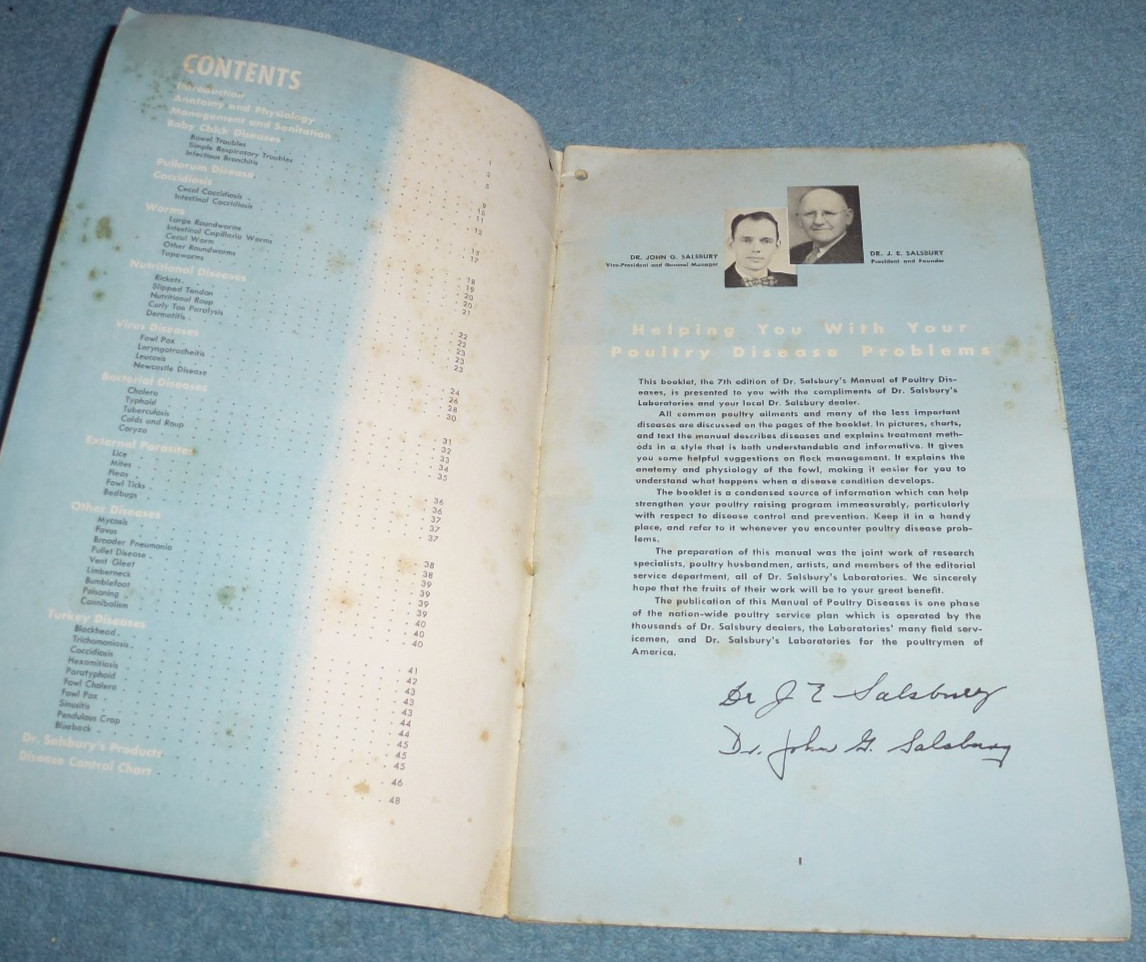 CONTENTS
Introduction
Anatomy and Physiology
Management and Sanitation
Baby Chick Diseases
Bowel Troubles
Simple Respiratory Troubles
Infectious Bronchitis
Pullorum Disease
Coccidiosis
Cecal Coccidiosis
Intestinal Coccidiosis
Worms
Large Roundworms
Intestinal Capillaria Worms
Cecal Worm
Other Roundworms
Tapeworms
Nutritional Diseases
Rickets
Slipped Tendon
Nutritional Roup
Curly Toe Paralysis
Dermatitis
Virus Diseases
Fowl Pox
Laryngotracheitis
Leucosis
Newcastle Disease
Bacterial Diseases
Cholera
Typhoid
Tuberculosis
Colds and Roup
Coryza
External Parasites
Lice
Mites
Fleas
Fowl Ticks
Bedbugs
Other Diseases
Mycosis
Favus
Brooder Pneumonia
Pullet Disease
Vent Gleet
Limberneck
Bumblefoot
Poisoning
Cannibalism
Turkey Diseases
Blackhead
Trichomoniasis
Coccidiosis
Hexamitiasis
Paratyphoid
Fowl Cholera
Fowl Pox
Sinusitis
Pendulous Crop
Blueback
Dr. Salsbury's Products
Disease Control Chart
18
19
20
20
21
22
22
23
23
23
24
26
28
30
31
32
33
34
35
36
36
37
37
37
38
38
39
39
39
39
40
40
40
41
42
43
43
43
44
44
45
45
45
46
48
DR. JOHN G. SALSBURY
Vice-President and General Manager
DR. J. E. SALSBURY
President and Founder
Helping You With Your
Poultry Disease Problems
This booklet, the 7th edition of Dr. Salsbury's Manual of Poultry Dis-
eases, is presented to you with the compliments of Dr. Salsbury's
Laboratories and your local Dr. Salsbury dealer.
All common poultry ailments and many of the less important
diseases are discussed on the pages of the booklet. In pictures, charts,
and text the manual describes diseases and explains treatment meth-
ods in a style that is both understandable and informative. It gives
you some helpful suggestions on flock management. It explains the
anatomy and physiology of the fowl, making it easier for you to
understand what happens when a disease condition develops.
The booklet is a condensed source of information which can help
strengthen your poultry raising program immeasurably, particularly
with respect to disease control and prevention. Keep it in a handy
place, and refer to it whenever you encounter poultry disease prob-
lems.
The preparation of this manual was the joint work of research
specialists, poultry husbandmen, artists, and members of the editorial
service department, all of Dr. Salsbury's Laboratories. We sincerely
hope that the fruits of their work will be to your great benefit.
The publication of this Manual of Poultry Diseases is one phase
of the nation-wide poultry service plan which is operated by the
thousands of Dr. Salsbury dealers, the Laboratories' many field serv-
icemen, and Dr. Salsbury's Laboratories for the poultrymen of
America.
Dr J E Salsbury
Dr. John G. Salsbury
1